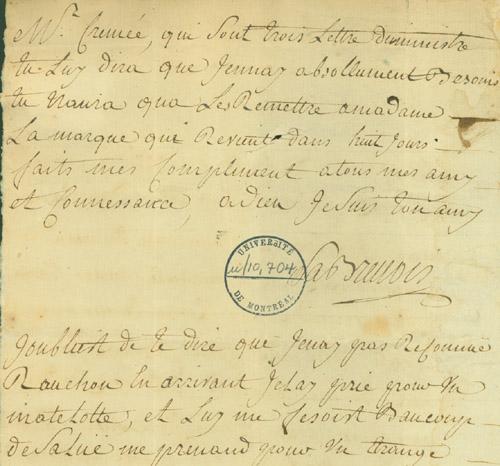 Mr. Cremée, qui sont trois Lettre duministre
tu Luy dira que Jennay absollument Besoins
tu naura qua Les Remettre amadame
La marque qui Revient dans huit Jours
faits mes Compliment atous mes amy
et Connessance, adieu Je suis ton amy
UNIVERSITÉ
u/10,704
DE MONTRÉAL
Joubliest de te dire que Jenay pas Reconnue
Rauchon En arrivant Je Lay prie pour un
matelotte, et Luy me fesoist Beaucoup
de Salue me prenand pour un Etrange